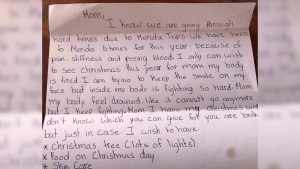 Mom,
I know we are going through
hard times due to Merida Trips. We have been
to Merida 6 times for this year because of
pain, stiffness and peeing blood. I only can wish
to see Christmas this year for mom my body
is tired. I am trying to keep the smile on my
face but inside my body is fighting so hard. Mom
my body feel drained like it cannot go anymore
but I keep fighting. Mom I have my Christmas list
don't know which you can give but you are
but just in case. I wish to have.
* Christmas tree (lots of lights)
* Food on Christmas day
* Skin Care